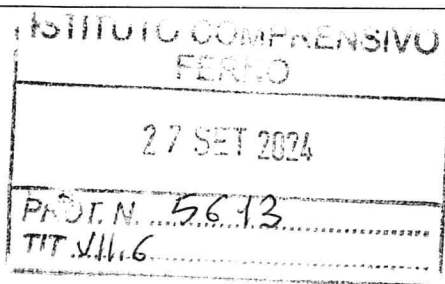 ISTITUTO COMPRENSIVO
FERNO
27 SET 2024
PROT. N. 5613
TIT. VII.6